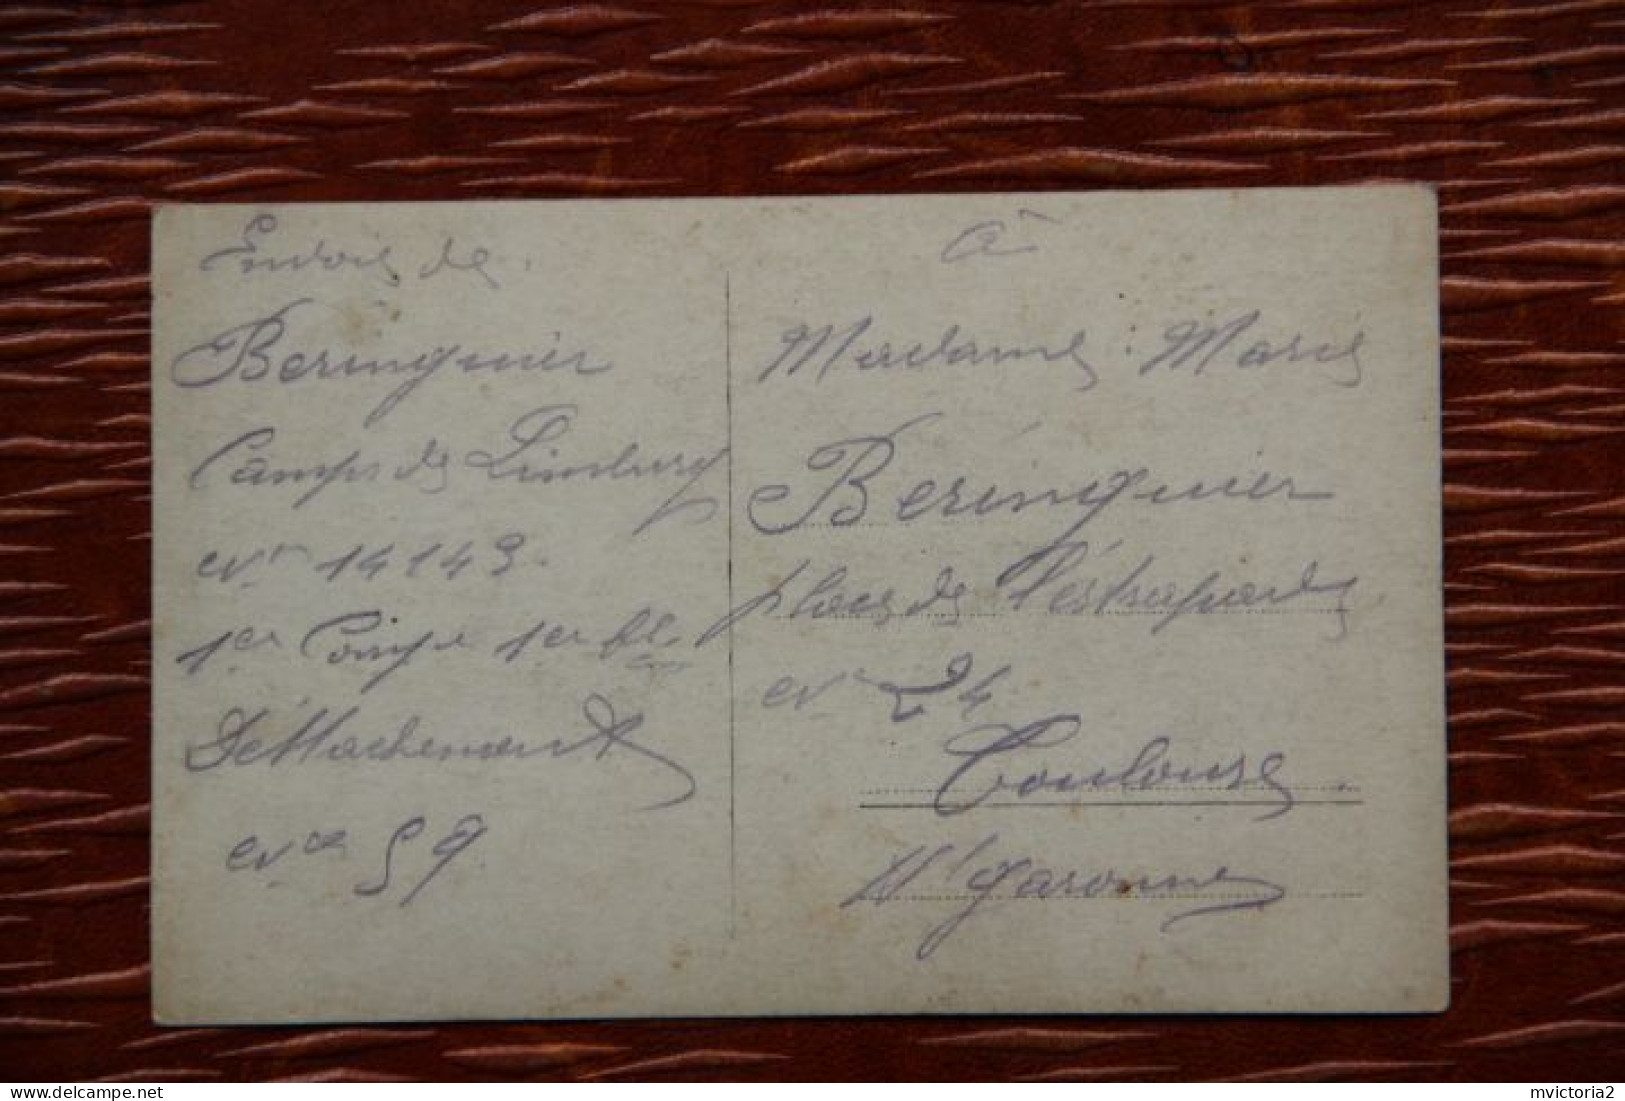 Envois de
Beringuier
Camps de Limburg
N° 14143.
1er Compe 1er Bl.
Déttachement
N° 59
à
Madame Marie
Beringuier
place de l'éstrapade
N° 24
Toulouse.
Hte garonne
mvictoria2